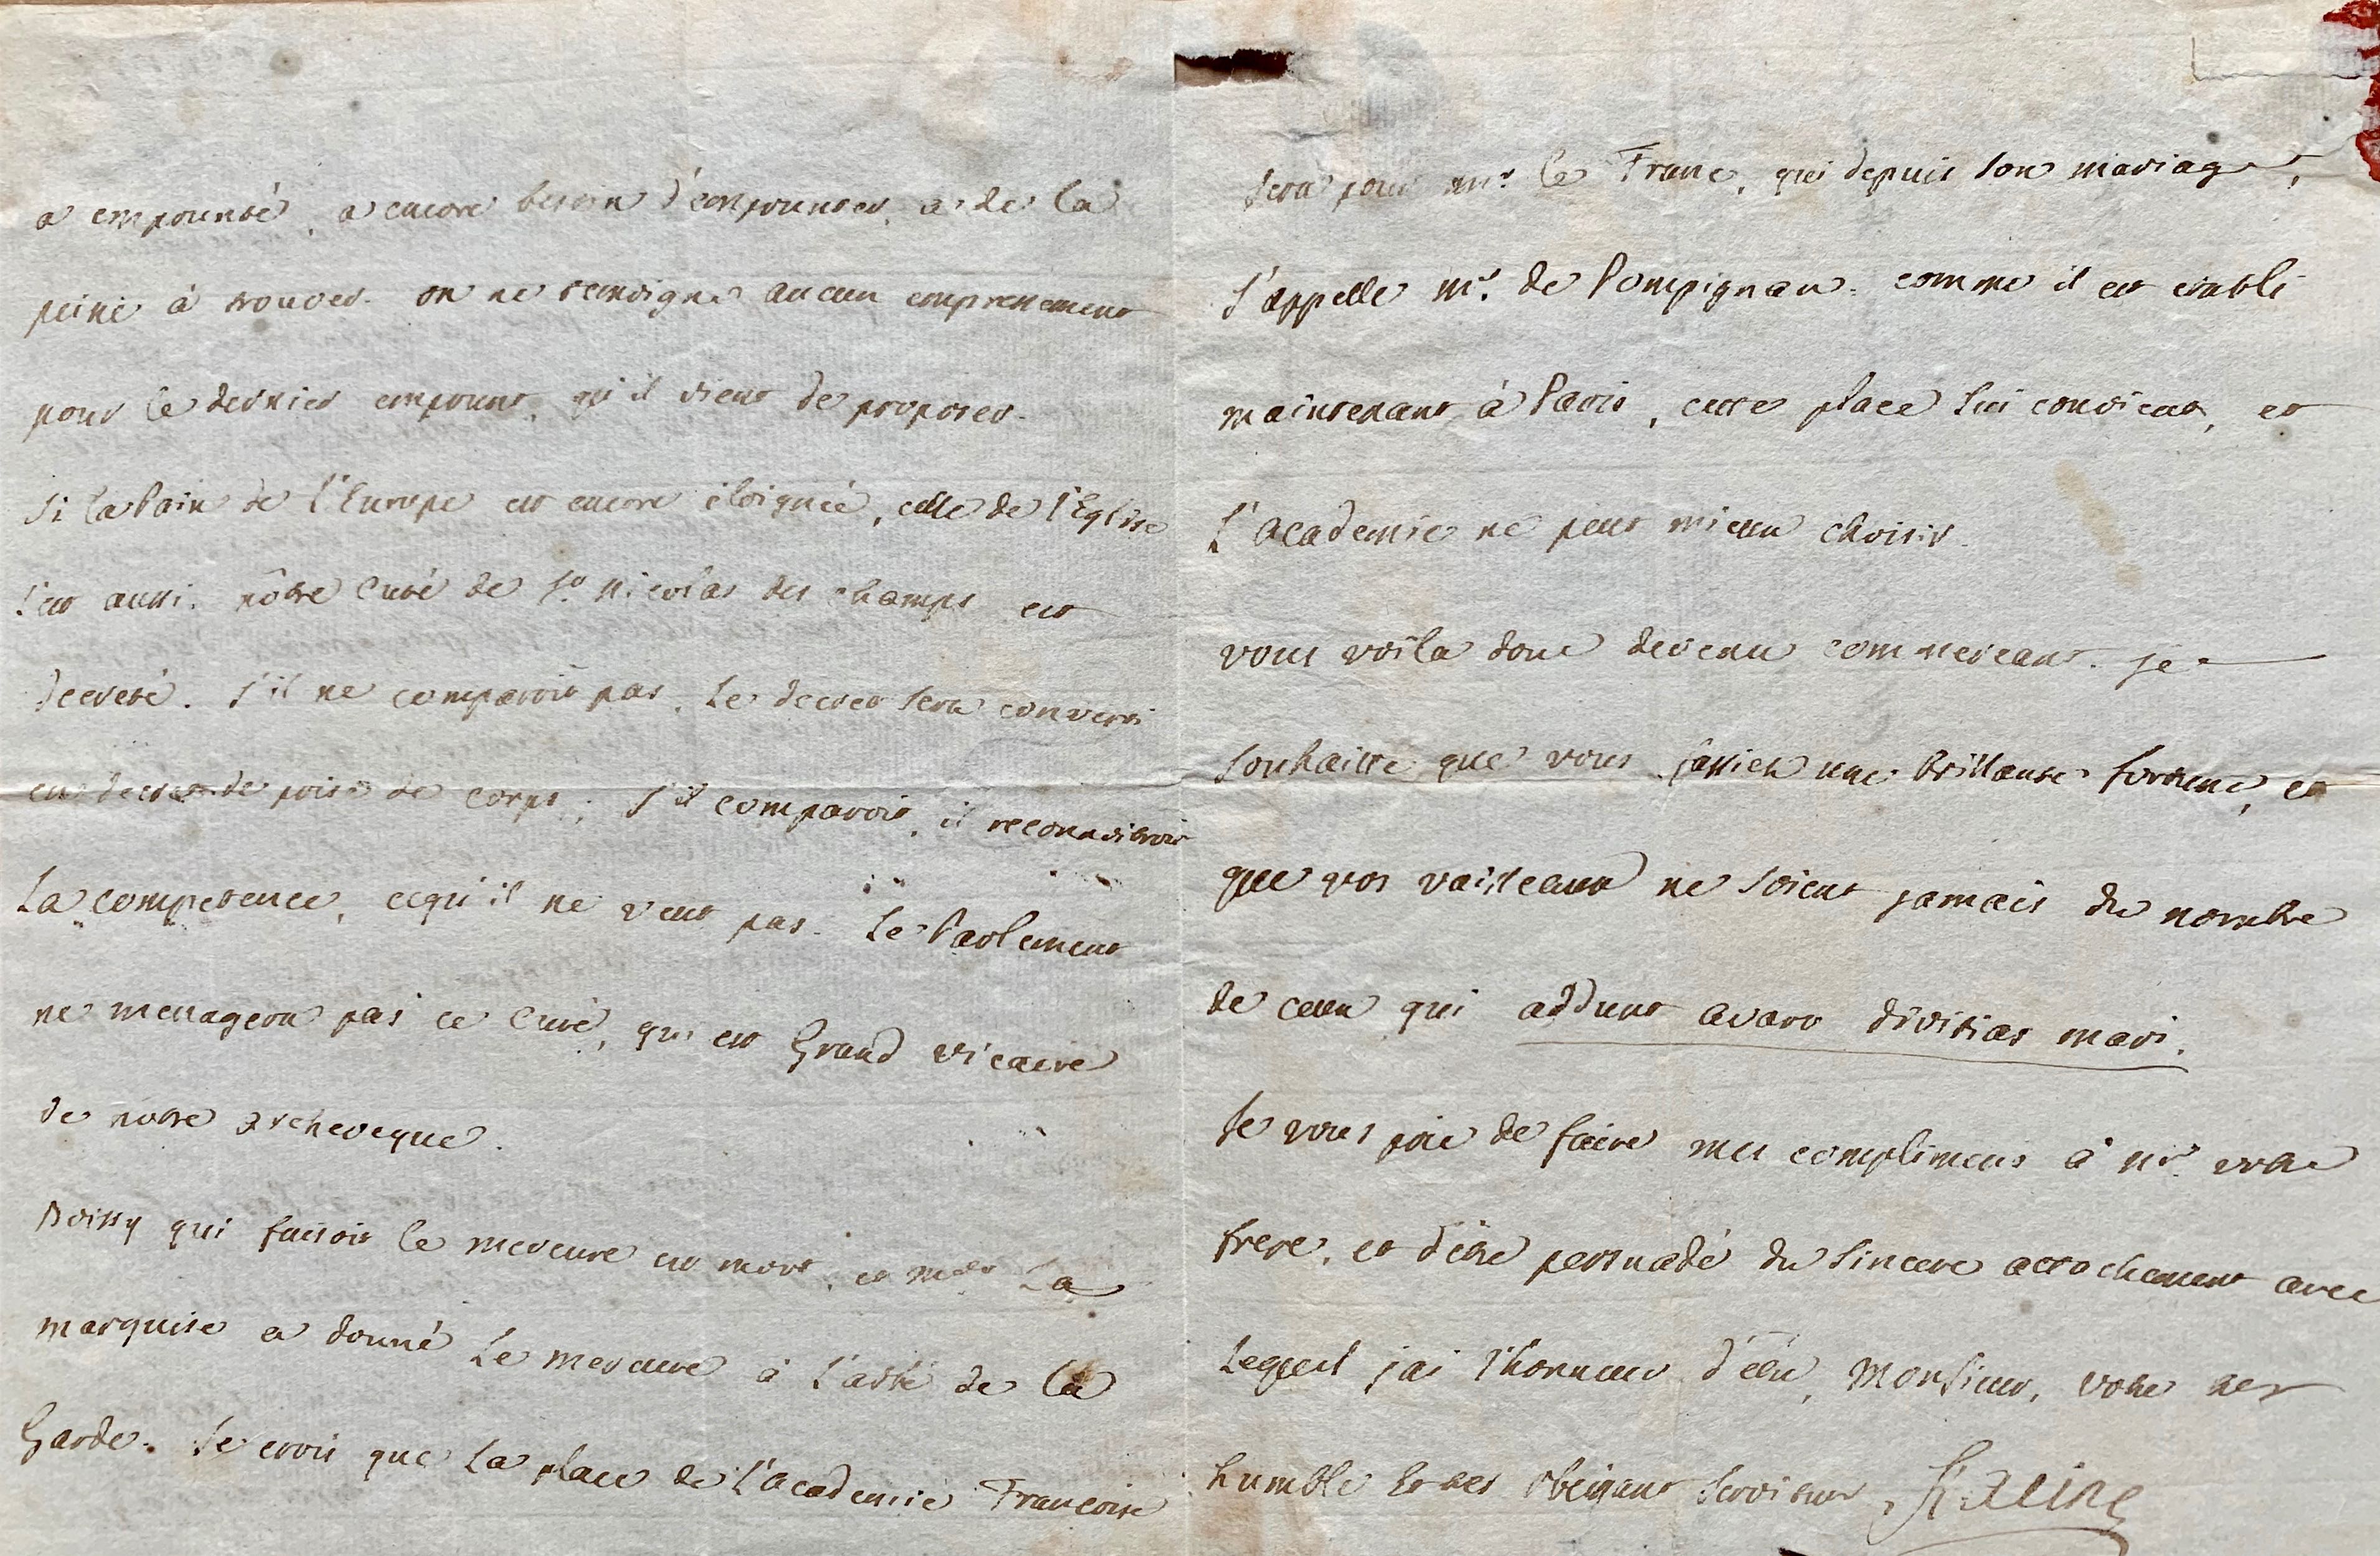 a emprunté, a encore besoin d'emprunter, a de la
peine à trouver. on ne temoigne aucun empressement
pour le dernier emprunt, qu'il vient de proposer.
Si la Paix de l'Europe est encore eloignée, celle de l'Eglise
l'est aussi. nôtre Curé de St. Nicolas des champs est
decreté. S'il ne comparoit pas, Le decret sera converti
en decret de prise de corps ; S'il comparoit, il reconnoitroit
La competence, cequ'il ne veut pas. Le Parlement
ne menagera pas ce Curé, qui est Grand vicaire
de notre archeveque.
Boissy qui faisoit le mercure est mort, et Made La
marquise a donné Le mercure à l'abbé de la
Garde. Je crois que La place de l'academie Françoise
sera pour mr. le Franc, qui depuis son mariage,
s'appelle mr. de Pompignan. comme il est etabli
maintenant à Paris, cette place lui convient, et
L'academie ne peut mieux choisir.
vous voila donc devenu commercant. je
souhaitte que vous fassiez une brillante fortune, et
que vos vaisseaux ne soient jamais du nombre
de ceux qui addunt avaro divitias mari.
Je vous prie de faire mes complimens à mr. votre
frere, et d'être persuadé du sincere attachement avec
Lequel j'ai l'honneur d'être, Monsieur, votre tres
humble et tres obeissant serviteur, Racine